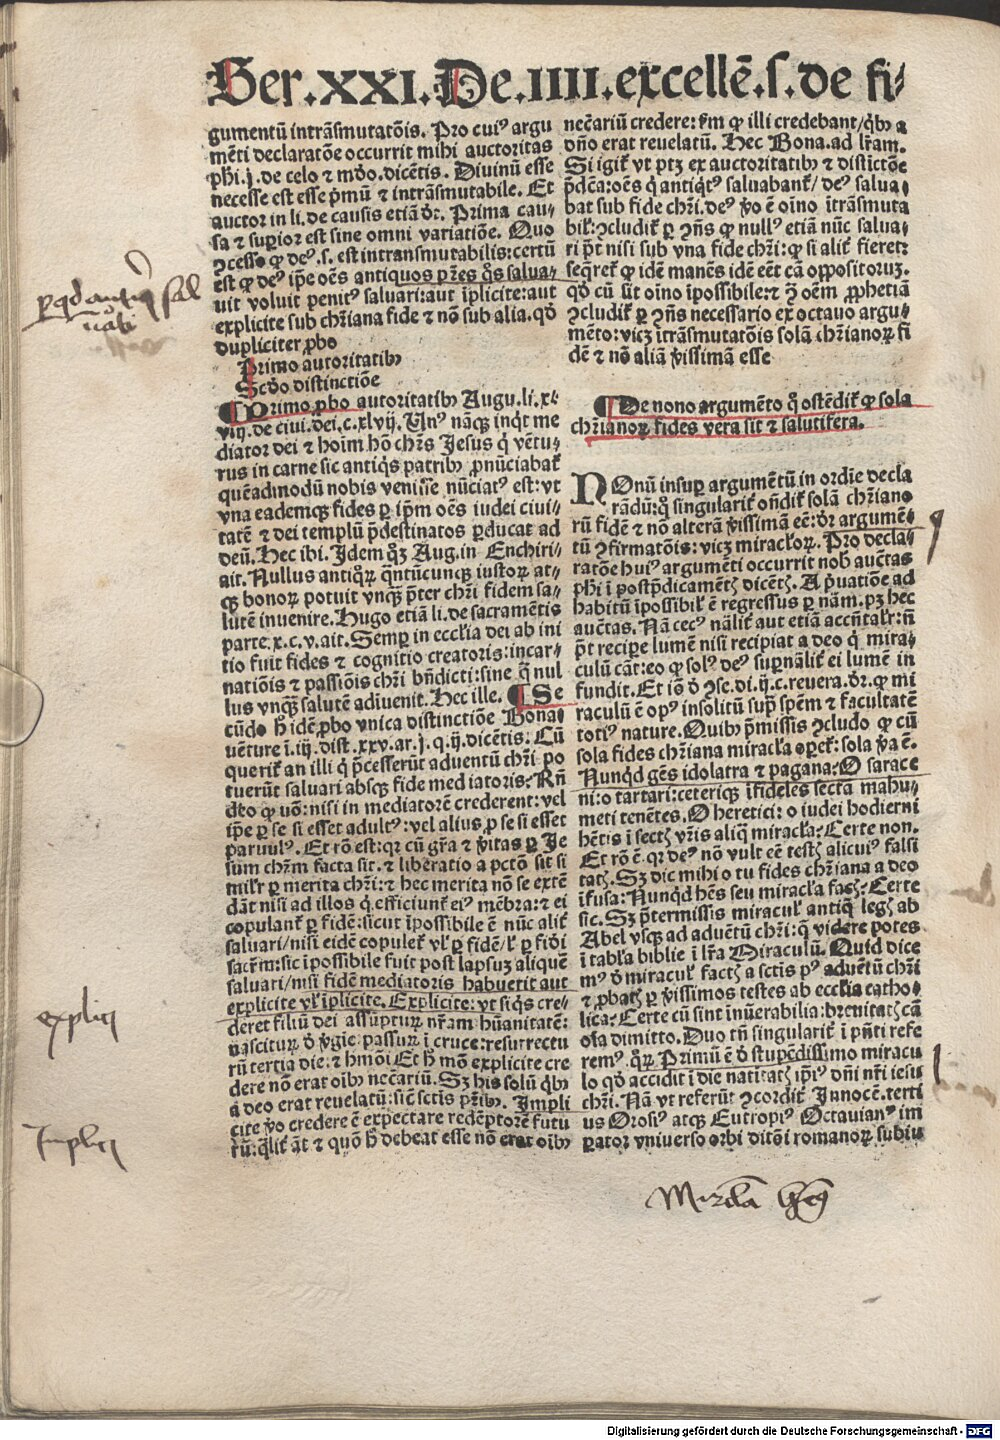 Ser.XXI.De.IIII.excellē.ſ.de fi⸗
gumentū intrãſmutatõis. Pro cuiꝰ argu
mẽti declaratõe occurrit mihi auctoritas
phi.j.de celo ⁊ mũo.dicẽtis. Diuinũ eſſe
neceſſe eſt eſſe p̃mũ ⁊ intrãſmutabile. Et
auctor in li.de cauſis etiã dr̃. Prima cau⸗
ſa ⁊ ſuperior eſt ſine omni variatiõe. Quo
ꝯceſſo ꝙ deꝰ.ſ. eſt intransmutabilis:certũ
eſt ꝙ deꝰ ip̃e oẽs antiquos pr̃es q̃s ſalua⸗
uit voluit penitꝰ ſaluari:aut ĩplicite:aut
explicite ſub chr̃iana fide ⁊ nõ ſub alia.qd̃
dupliciter ꝓbo
Primo autoritatibꝰ
Scd̃o diſtinctiõe
¶ Primo ꝓbo autoritatibꝰ Augu.li.xl⸗
viij.de ciui.dei.c.xlvij. Vnꝰ nãqꝫ inqt̃ me
diator dei ⁊ hoim hõ chr̃s Jeſus q̃ vẽtu⸗
rus in carne ſic antiq̃s patribꝰ ꝓnũciabat̃
quẽadmodũ nobis veniſſe nũciatꝰ eſt:vt
vna eademqꝫ fides ꝑ ip̃m oẽs iudei ciui⸗
tatẽ ⁊ dei templũ p̃deſtinatos ꝑducat ad
deũ. Hec ibi. Idem q̃ꝫ Aug.in Enchiri⸗
ait. Nullus antiq̃ꝝ q̃ntũcunqꝫ iuſtoꝝ at⸗
qꝫ bonoꝝ potuit vnqꝫ p̃ter chr̃i fidem ſa⸗
lutẽ inuenire. Hugo etiã li.de ſacramẽtis
parte.x.c.v.ait. Semꝑ in eccl̃ia dei ab ini
tio fuit fides ⁊ cognitio creatoris:incar⸗
natiõis ⁊ paſſiõis chr̃i bñdicti:ſine q̃ nul
lus vnqꝫ ſalutẽ adiuenit. Hec ille. ¶ Se
cũdo h̃ idẽ ꝓbo vnica diſtinctiõe Bona⸗
uẽture ĩ.iij.diſt.xxv.ar.j.q.ij.dicẽtis. Cũ
querit̃ an illi q̃ p̃ceſſerũt aduentũ chr̃i po
tuerũt ſaluari abſqꝫ fide mediatoris. Rñ
deo ꝙ uõ:niſi in mediatorẽ crederent:vel
ip̃e ꝑ ſe ſi eſſet adultꝰ:vel alius ꝓ ſe ſi eſſet
paruulꝰ. Et rõ eſt:qꝛ cũ gr̃a ⁊ ṽitas ꝑ Je
ſum chr̃m facta ſit. ⁊ liberatio a pctõ ſit ſi
mil̃r ꝑ merita chr̃i:⁊ hec merita nõ ſe extẽ
dãt niſi ad illos q̃ efficiunt̃ eiꝰ mẽbra:⁊ ei
copulant̃ ꝑ fidẽ:ſicut ĩpoſſibile ẽ nũc alit̃
ſaluari/niſi eidẽ copulet̃ vl̃ ꝑ fidẽ/l̃ ꝑ fid̃i
ſacr̃m:ſic ĩpoſſibile fuit poſt lapſuꝫ aliquẽ
ſaluari/niſi fidẽ mediatoris habuerit aut
explicite vl̃ ĩplicite. Explicite: vt ſiq̃s cre⸗
deret filiũ dei aſſũptuꝝ nr̃am hũanitatẽ:
naſcituꝝ d̃ v̓gie:paſſuꝝ ĩ cruce:reſurrectu
rũ tertia die.⁊ hmõi Et h̃ mõ explicite cre
dere nõ erat oĩbꝰ nec̃ariũ. Sꝫ his ſolũ q̃bꝰ
a deo erat reuelatũ:ſic̃ ſctĩs pr̃ibꝰ. Impli
cite v̓o credere ẽ expectare redẽptorẽ futu
rũ:q̃lit̃ ãt ⁊ quõ h̃ debeat eſſe nõ erat oĩbꝰ
nec̃ariũ credere: ſm̃ ꝙ illi credebant/q̃bꝰ a
dño erat reuelatũ. Hec Bona.ad lr̃am.
Si igit̃ vt ptꝫ ex auctoritatibꝰ ⁊ diſtictõe
p̃dc̃a:oẽs q̃ antiq̃tꝰ ſaluabant̃/deꝰ ſalua⸗
bat ſub fide chr̃i.deꝰ v̓o ẽ oĩno ĩtrãſmuta
bil̃:ꝯcludit̃ ꝑ ꝯñs ꝙ nullꝰ etiã nũc ſalua⸗
ri p̃t niſi ſub vna fide chr̃i:ꝙ ſi alit̃ fieret:
ſeq̃ret̃ ꝙ idẽ manẽs idẽ eẽt cã oppoſitoruꝫ.
qd̃ cũ ſit oĩno ĩpoſſibile:⁊ ꝯ̃ oẽm ꝓphetiã
ꝯcludit̃ ꝑ ꝯñs neceſſario ex octauo argu⸗
mẽto:vicꝫ ĩtrãſmutatõis ſolã chr̃ianoꝝ fi
dẽ ⁊ nõ aliã v̓iſſimã eſſe
¶ De nono argumẽto q̃ oſtẽdit̃ ꝙ ſola
chr̃ianoꝝ fides vera ſit ⁊ ſalutifera.
NOnũ inſuꝑ argumẽtũ in ordĩe decla
rãdũ:q̃ ſingularit̃ oñdit̃ ſolã chr̃iano
rũ fidẽ ⁊ nõ alterã v̓iſſimã eẽ:dr̃ argumẽ⸗
tũ ꝯfirmatõis: vicꝫ miracl̃oꝝ. Pro decla⸗
ratõe huiꝰ argumẽti occurrit nob̃ auc̃tas
phi ĩ poſtp̃dicamẽtꝭ dicẽtꝭ. A p̃uatiõe ad
habitũ ĩpoſſibil̃ ẽ regreſſus ꝑ nãm.pꝫ hec
auc̃tas. Nã cecꝰ nãlit̃ aut etiã accñtal̃r:ñ
p̃t reciꝑe lumẽ niſi recipiat a deo q̃ mira⸗
culũ cãt:eo ꝙ ſolꝰ deꝰ ſuꝑnãlit̃ ei lumẽ in
fundit. Et iõ d̃ ꝯſe.di.ij.c.reuera.dr̃.ꝙ mi
raculũ ẽ opꝰ inſolitũ ſup̃ ſpẽm ⁊ facultatẽ
totiꝰ nature. Quibꝰ p̃miſſis ꝯcludo ꝙ cũ
ſola fides chr̃iana miracl̃a oꝑet̃: ſola v̓a ẽ.
Nunqd̃ gẽs idolatra ⁊ pagana: O ſarace
ni:o tartari:ceteriqꝫ ĩfideles ſectã mahu⸗
meti tenẽtes. O heretici: o iudei hodierni
hẽtis ĩ ſectꝭ vr̃is aliq̃ miracl̃a: Certe non.
Et rõ ẽ.qꝛ deꝰ nõ vult eẽ teſtꝭ alicuiꝰ falſi
tatꝭ. Sꝫ dic mihi o tu fides chr̃iana a deo
ĩfuſa: Nunqd̃ hẽs ſeu miracl̃a facꝭ: Certe
ſic. Sꝫ p̃termiſſis miracul̃ antiq̃ legꝭ ab
Abel vſqꝫ ad aduẽtũ chr̃i:q̃ videre potes
ĩ tabl̃a biblie ĩ lr̃a Miraculũ. Quid dice
mꝰ d̃ miracul̃ factꝭ a ſctĩs pꝰ aduẽtũ chr̃i
⁊ ꝓbatꝭ ꝑ v̓iſſimos teſtes ab eccl̃ia catho⸗
lica: Certe cũ ſint inũerabilia:breuitatꝭ cã
oĩa dimitto. Duo tñ ſingularit̃ ĩ p̃nti refe
remꝰ q̃ꝝ Primũ ẽ d̃ ſtupẽdiſſimo miracu
lo qd̃ accidit ĩ die natitatꝭ ip̃iꝰ dñi nr̃i ieſu
chr̃i. Nã vt referũt ꝯcordit̃ Innocẽ.terti
us Oroſiꝰ atqꝫ Eutropiꝰ Octauianꝰ im
ꝑator vniuerſo orbi ditõi romanoꝝ ſubiu
explici
Implici